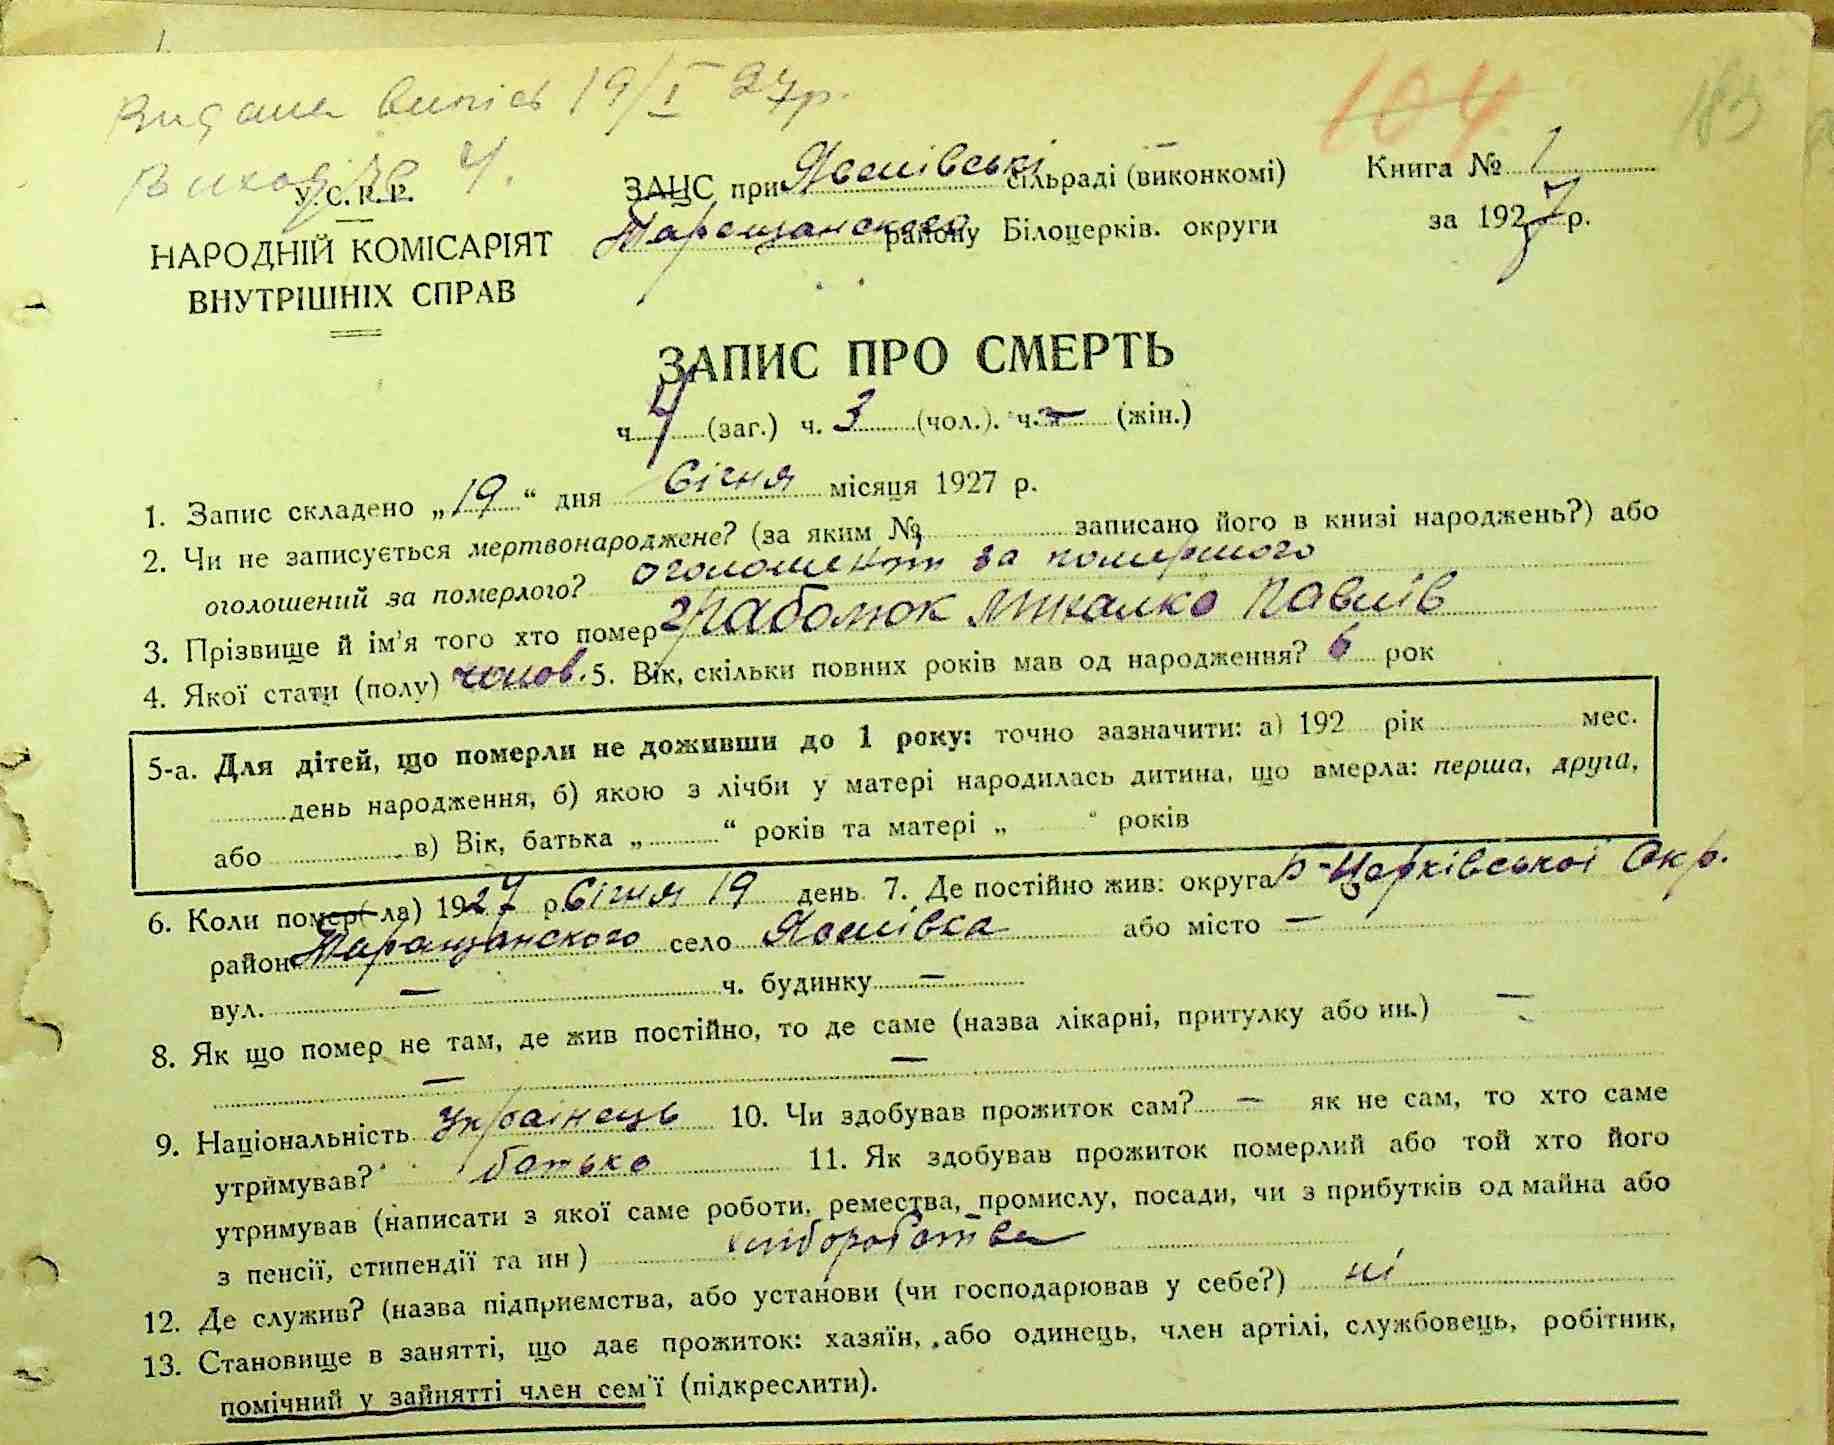 Видана випись 19/I 27р.
Виход № 4.
104
183
У.С.Р.Р.
НАРОДНІЙ КОМІСАРІЯТ
ВНУТРІШНІХ СПРАВ
ЗАЦС при сільраді (виконкомі)
Таращанского району Білоцерків. округи
Книга № 1
за 1927 р.
ЗАПИС ПРО СМЕРТЬ
ч. 4 (заг.) ч. 3 (чол.). ч. – (жін.)
1. Запис складено „19“ дня Січня місяця 1927 р.
2. Чи не записується мертвонароджене? (за яким № записано його в книзі народжень?) або
оголошений за померлого? оголошен за помершого
3. Прізвище й ім'я того хто помер Михалко Павлів
4. Якої стати (полу) чолов. 5. Вік, скільки повних років мав од народження? 6 рок
5-а. Для дітей, що померли не доживши до 1 року: точно зазначити: а) 192 рік мес.
день народження, б) якою з лічби у матері народилась дитина, що вмерла: перша, друга,
або в) Вік, батька „ “ років та матері „ “ років
6. Коли помер(-ла) 1927 р. Січня 19 день. 7. Де постійно жив: округа Б-Церківської Окр.
район Таращанского село або місто –
вул. – ч. будинку –
8. Як що помер не там, де жив постійно, то де саме (назва лікарні, притулку або ин.) –
– –
9. Національність Українець 10. Чи здобував прожиток сам? – як не сам, то хто саме
утримував? батько 11. Як здобував прожиток померлий або той хто його
утримував (написати з якої саме роботи, ремества, промислу, посади, чи з прибутків од майна або
з пенсії, стипендії та ин) хліборобства
12. Де служив? (назва підприємства, або установи (чи господарював у себе?) ні
13. Становище в занятті, що дає прожиток: хазяїн, або одинець, член артілі, службовець, робітник,
помічний у зайнятті член сем'ї (підкреслити).